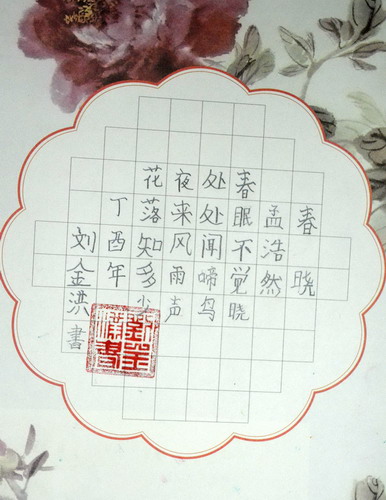 春晓
孟浩然
春眠不觉晓
处处闻啼鸟
夜来风雨声
花落知多少
丁酉年
刘金洪書